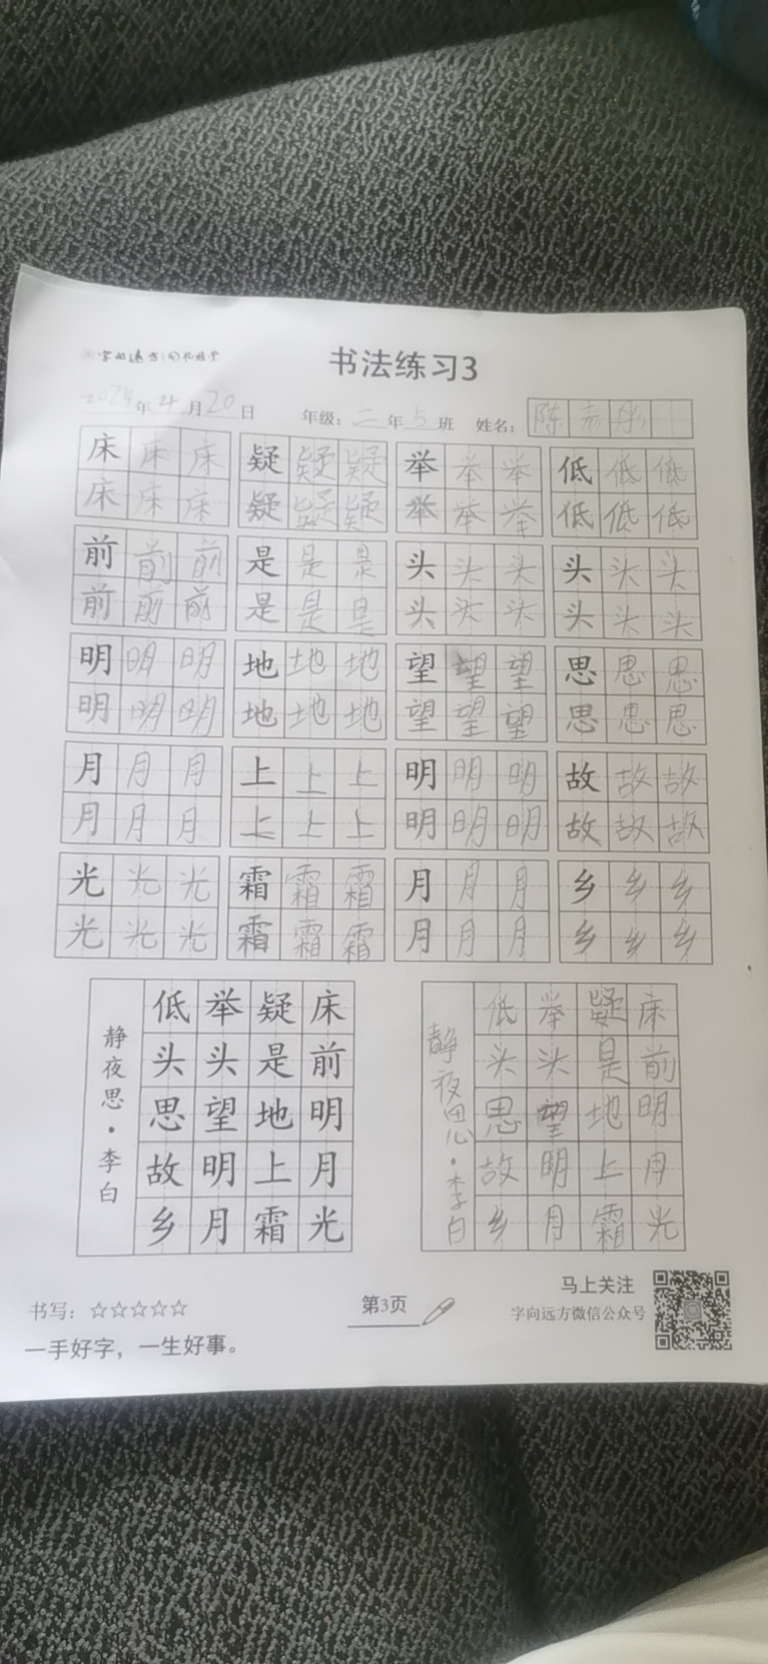 书法练习3
2025年4月20日 年级：二年5班 姓名：陈嘉彤
床床床 疑疑疑 举举举 低低低
床床床 疑疑疑 举举举 低低低
前前前 是是是 头头头 头头头
前前前 是是是 头头头 头头头
明明明 地地地 望望望 思思思
明明明 地地地 望望望 思思思
月月月 上上上 明明明 故故故
月月月 上上上 明明明 故故故
光光光 霜霜霜 月月月 乡乡乡
光光光 霜霜霜 月月月 乡乡乡
床前明月光
疑是地上霜
举头望明月
低头思故乡
静夜思·李白
床前明月光
疑是地上霜
举头望明月
低头思故乡
静夜思·李白
书写：☆☆☆☆☆
一手好字，一生好事。
第3页
马上关注
字向远方微信公众号